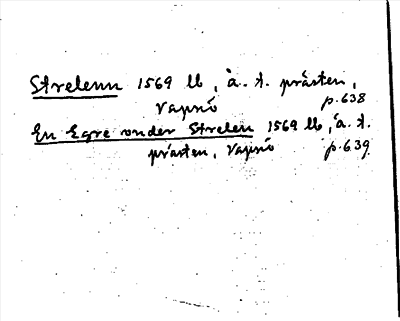 Strelenn 1569 lb, å. t. prästen,
Vapnö p.638
En Egre vnder Strelen 1569 lb, å. t.
prästen, Vapnö p.639